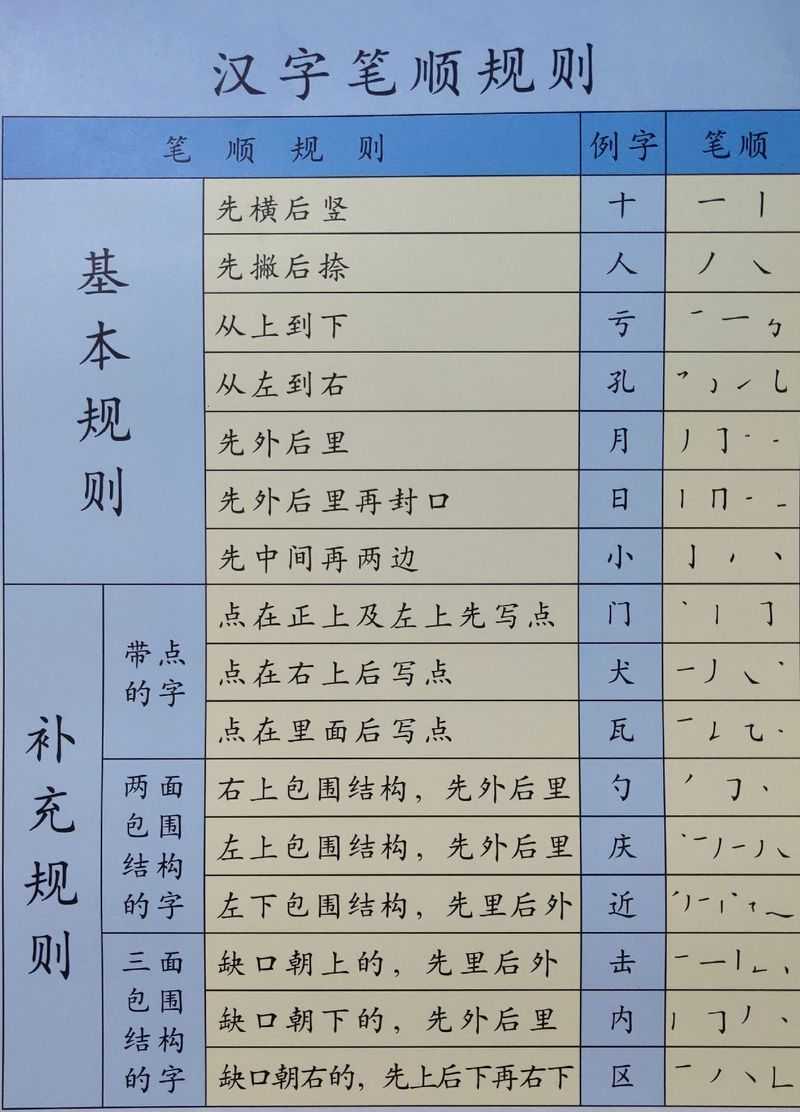 汉字笔顺规则
笔顺规则 例字 笔顺
基本规则
先横后竖 十 一 丨
先撇后捺 人 丿 ㇏
从上到下 亏 一 一 ㇉
从左到右 孔 ㇇ ㇚ ㇀ 乚
先外后里 月 丿 ㇆ 一 一
先外后里再封口 日 丨 ㇕ 一 一
先中间再两边 小 亅 丿 丶
补充规则
带点的字
点在正上及左上先写点 门 丶 丨 ㇆
点在右上后写点 犬 一 丿 ㇏ 丶
点在里面后写点 瓦 一 ㇙ ㇈ 丶
两面包围结构的字
右上包围结构，先外后里 勺 丿 ㇆ 丶
左上包围结构，先外后里 庆 丶 一 丿 一 丿 ㇏
左下包围结构，先里后外 近 丿 丿 一 丨 丶 ㇋ ㇏
三面包围结构的字
缺口朝上的，先里后外 击 一 一 丨 ㇗ 丨
缺口朝下的，先外后里 内 丨 ㇆ 丿 丶
缺口朝右的，先上后下再右下 区 一 丿 丶 ㇗